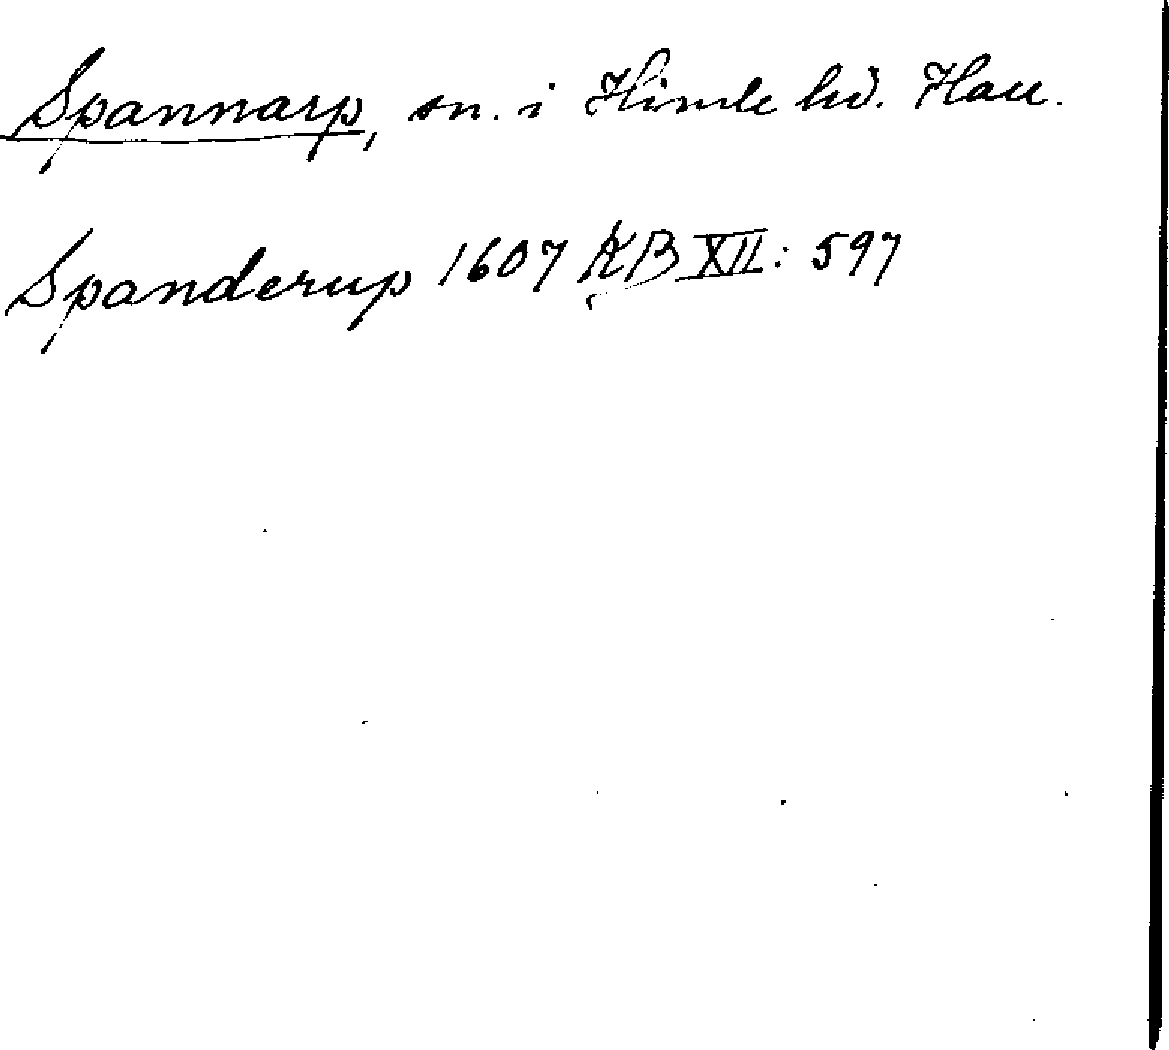 Spannarp, sn. i Himle hd. Hall.
Spanderup 1607 KB XII: 597